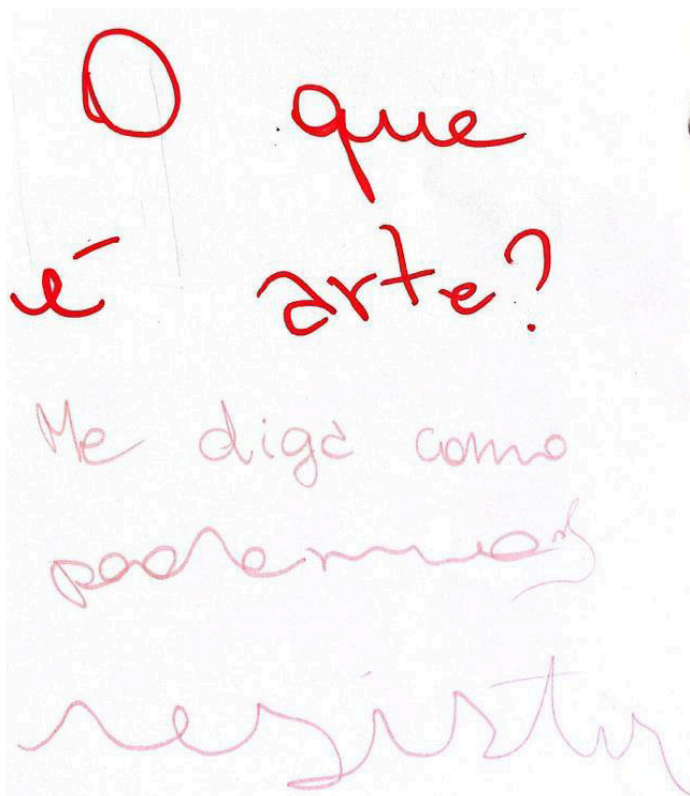 O que
é arte?
Me diga como
podemos
resistir